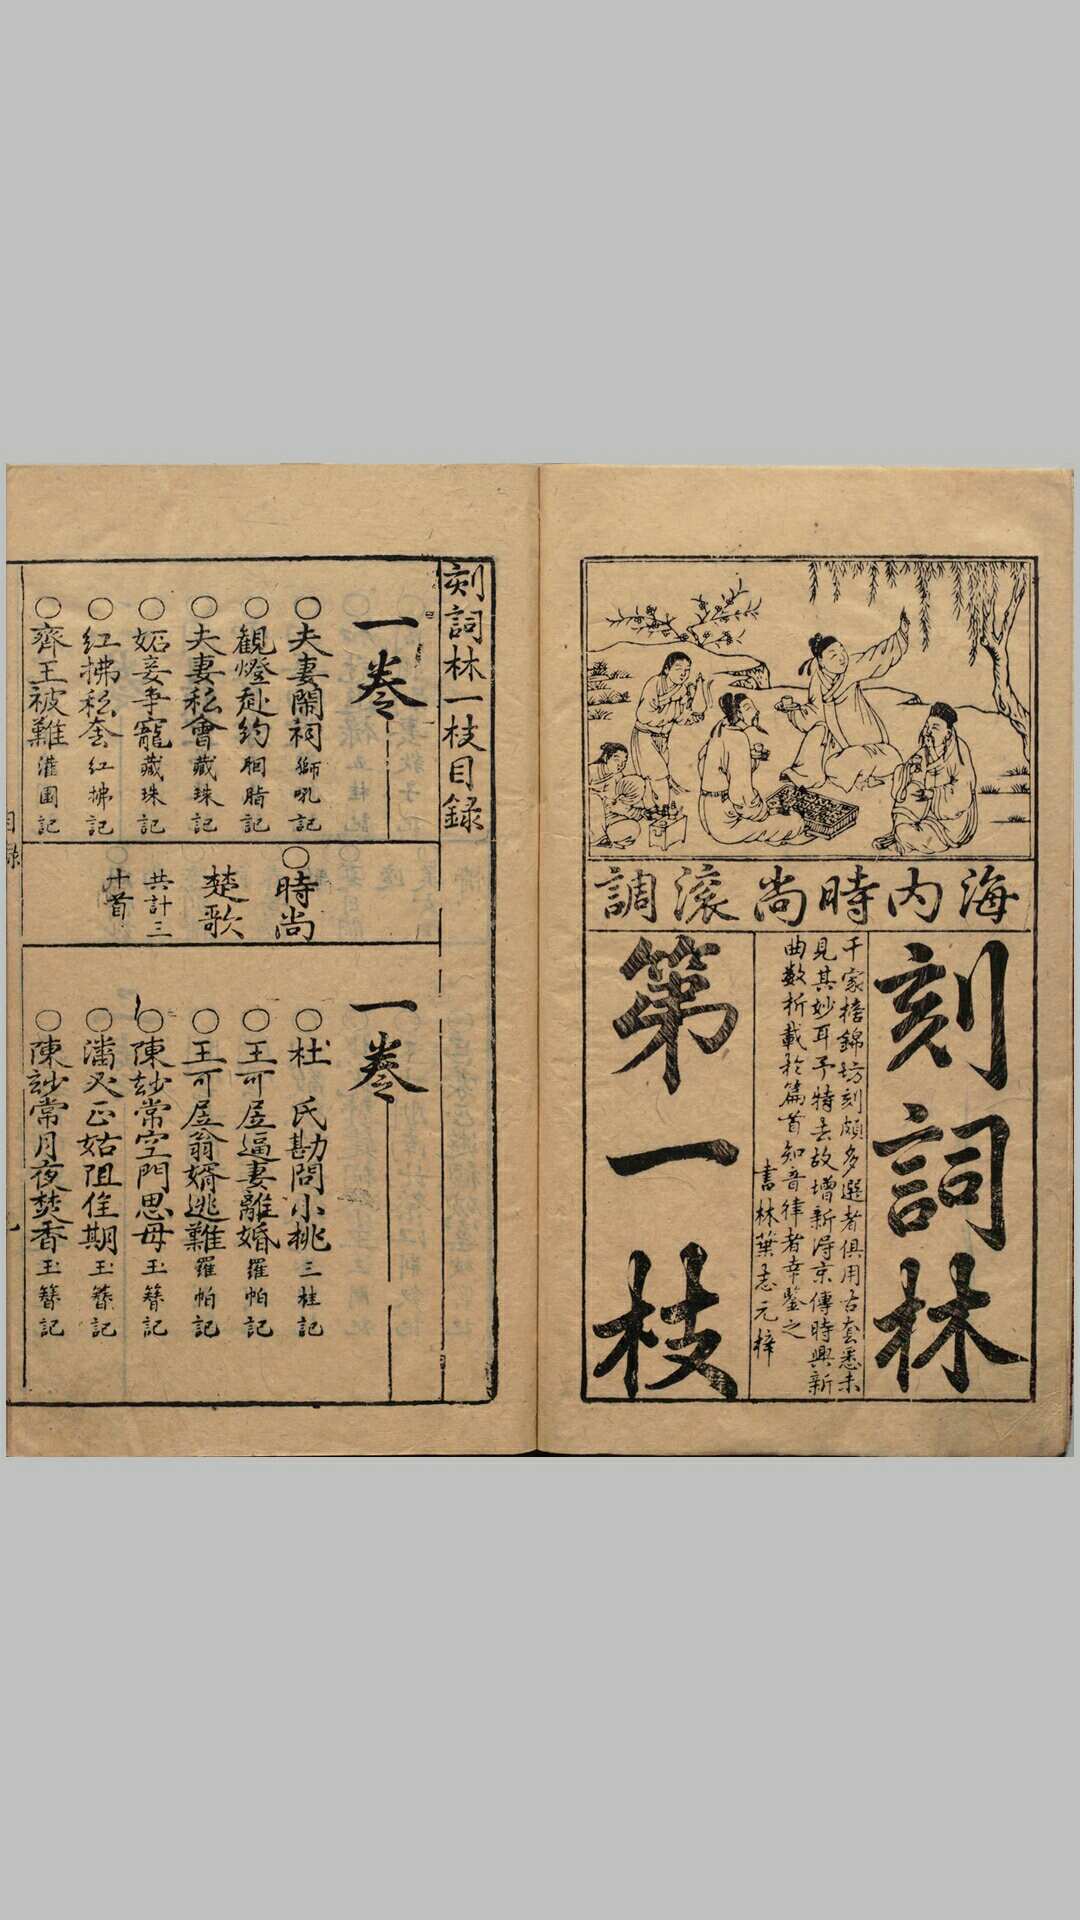 海内時尚滾調
刻詞林
千家摛錦坊刻頗多選者俱用古套悉未
見其妙耳予特去故增新得京傳時興新
曲數折載於篇首知音律者幸鑒之
書林葉志元梓
第一枝
刻詞林一枝目錄
一卷
○夫妻鬧祠獅吼記
○觀燈赴約胭脂記
○夫妻私會藏珠記
○妬妾爭寵藏珠記
○紅拂私奔紅拂記
○齊王被難灌園記
○時尚
楚歌
共計三
十首
一卷
○杜氏勘問小桃三桂記
○王可居逼妻離婚羅帕記
○王可居翁婿逃難羅帕記
○陳玅常空門思母玉簪記
○潘必正姑阻佳期玉簪記
○陳玅常月夜焚香玉簪記
目錄